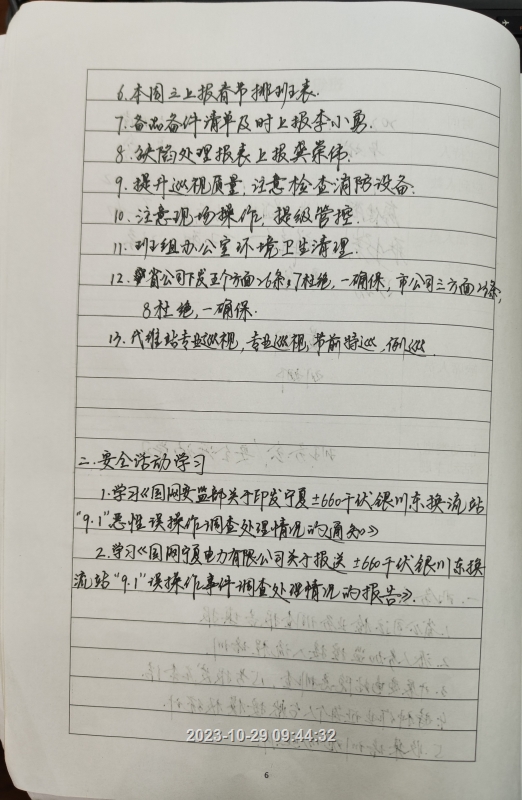 6.本周三上报春节排班表.
7.备品备件清单及时上报李小勇.
8.缺陷处理报表上报樊荣伟.
9.提升巡视质量,注意检查消防设备.
10.注意现场操作,提级管控.
11.班组办公室环境卫生清理.
12.省公司下发五个方面26条,7杜绝,一确保,市公司三方面23条,
8杜绝,一确保.
13.代维站专业巡视,专业巡视,节前特巡、例巡.
二.安全活动学习
1.学习《国网安监部关于印发宁夏±660千伏银川东换流站
"9.1"恶性误操作调查处理情况的通知》
2.学习《国网宁夏电力有限公司关于报送±660千伏银川东换
流站"9.1"误操作事件调查处理情况的报告》.
2023-10-29 09:44:32
6